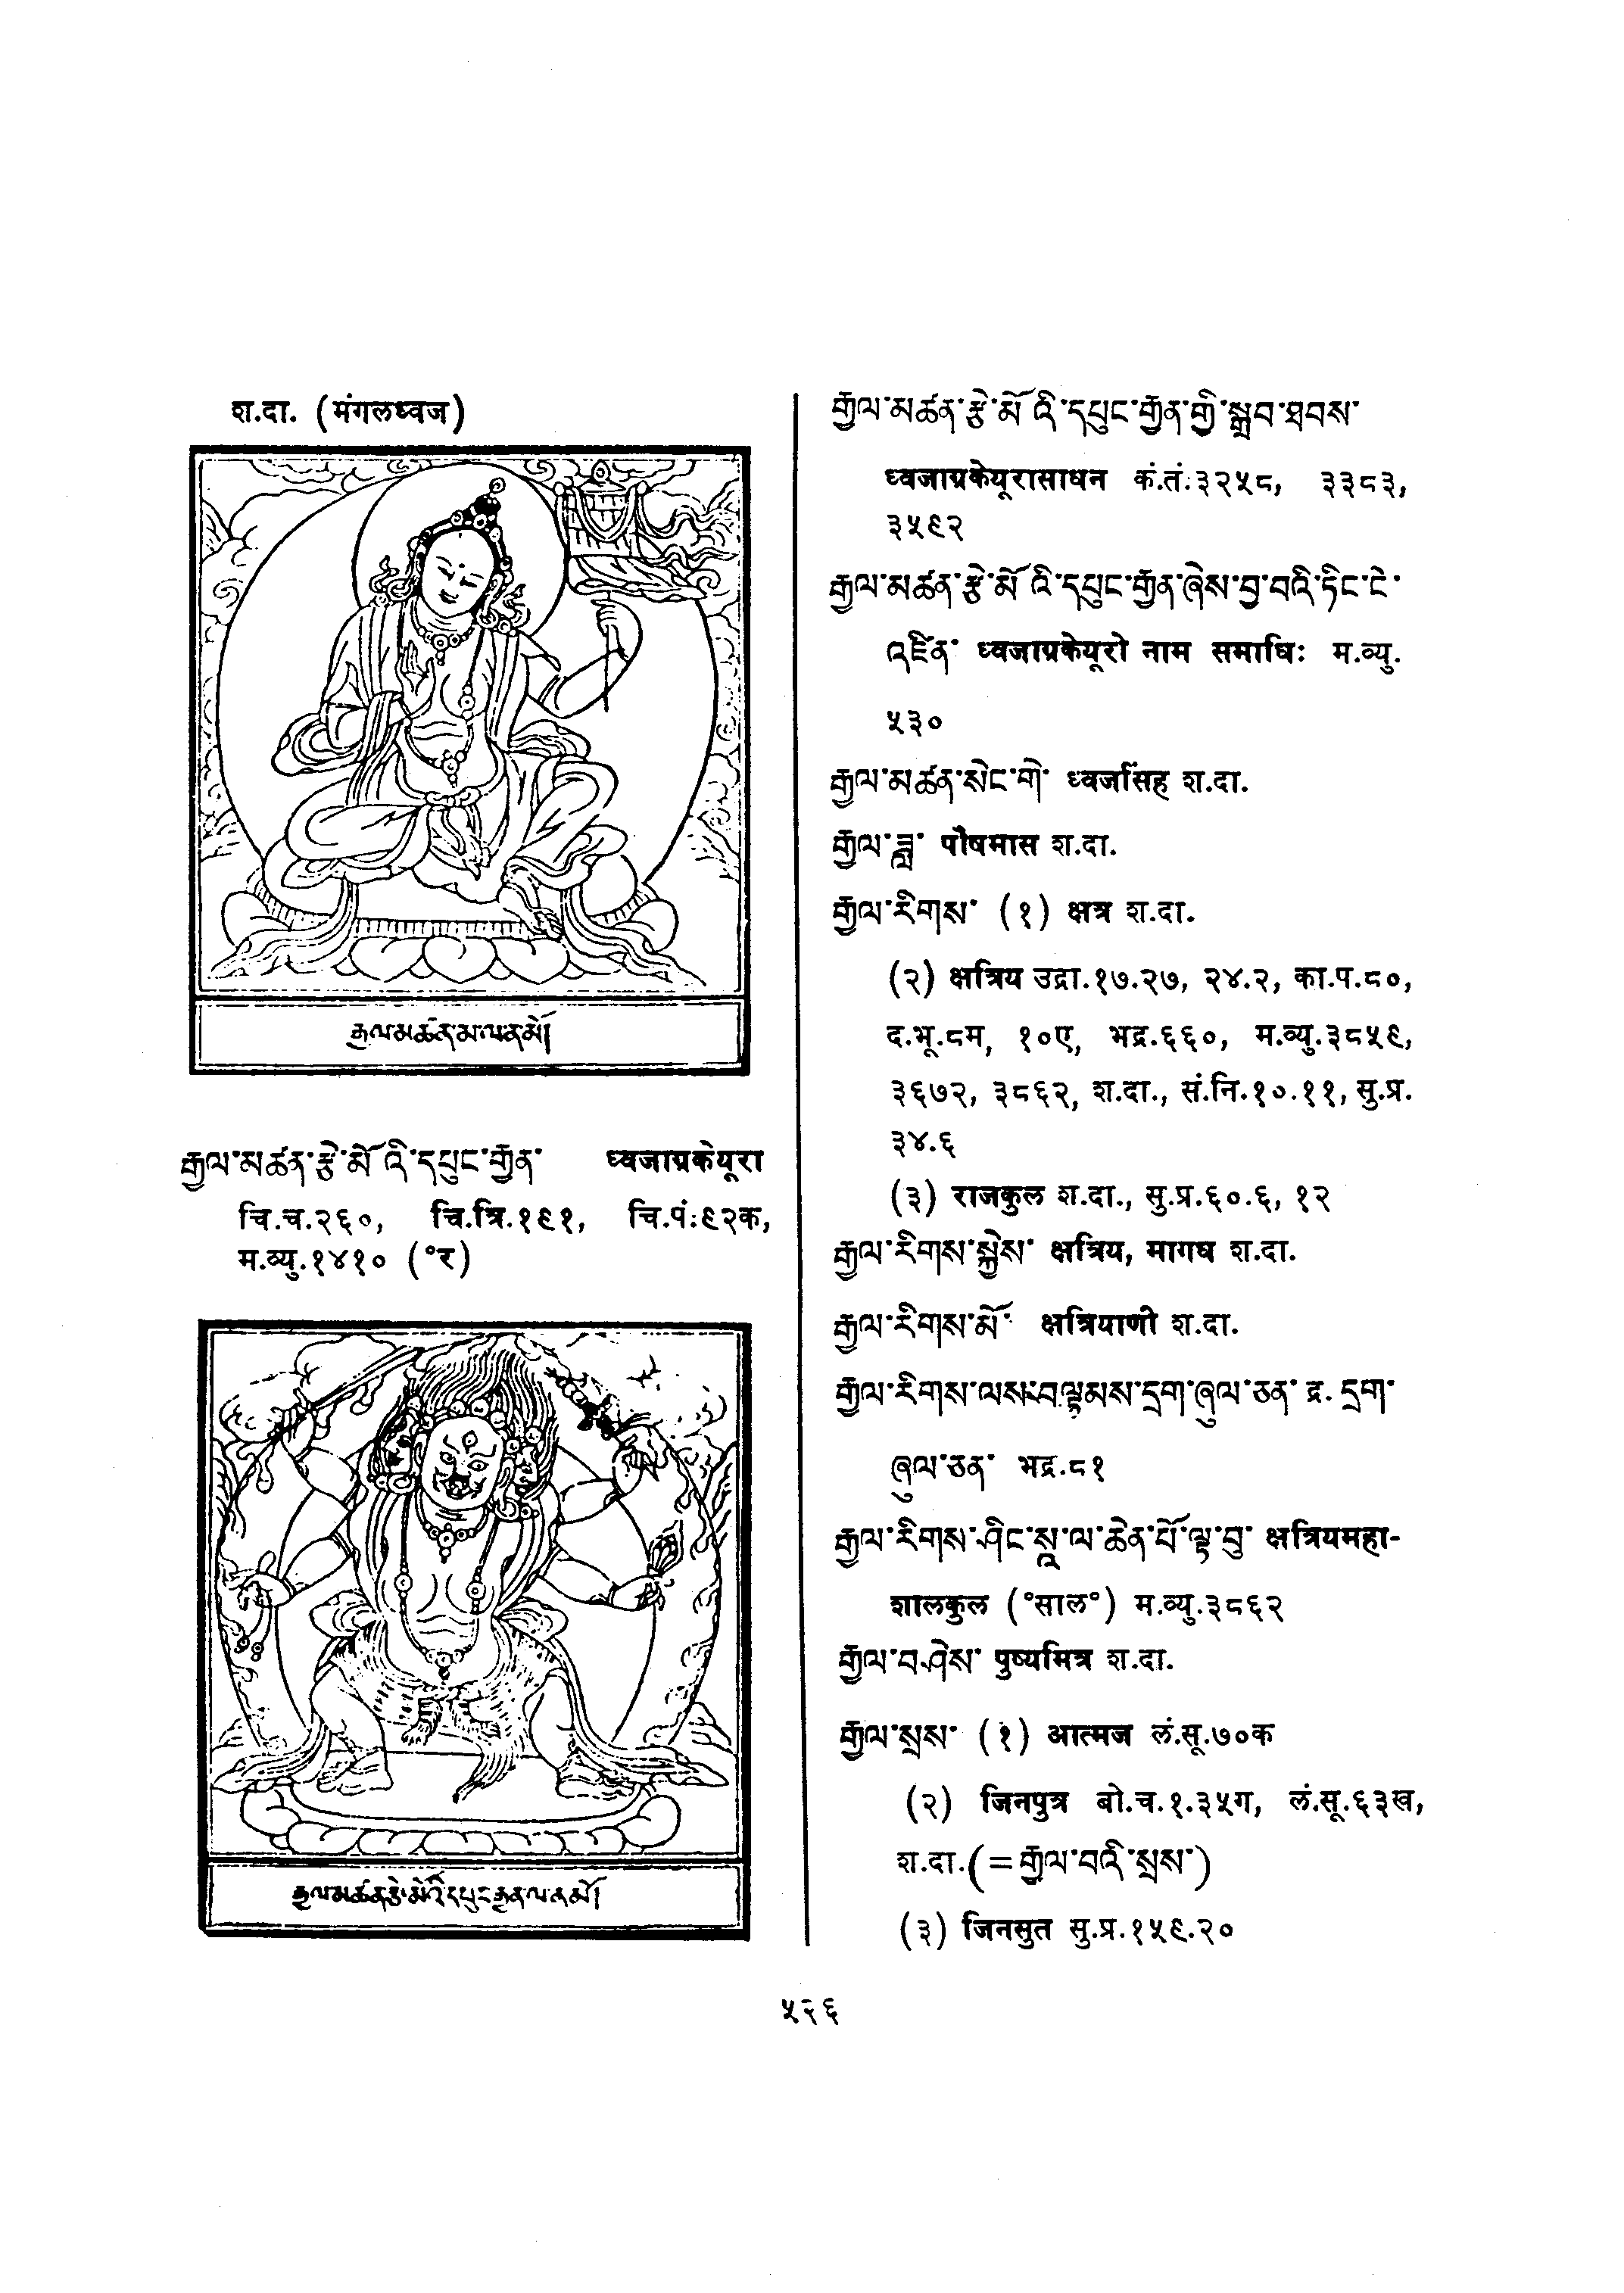 श.दा. (मंगलध्वज)
རྒྱལ་མཚན་མ་ལ་ན་མོ།
རྒྱལ་མཚན་རྩེ་མོ་འི་དཔུང་རྒྱན་ ध्वजाग्रकेयूरा
चि.च.२६०, चि.त्रि.१९१, चि.पं.९२क,
म.व्यु.१४१० (°र)
རྒྱལ་མཚན་རྩེ་མོའི་དཔུང་རྒྱན་ལ་ན་མོ།
རྒྱལ་མཚན་རྩེ་མོ་འི་དཔུང་རྒྱན་གྱི་སྒྲུབ་ཐབས་
ध्वजाग्रकेयूरासाधन कं.तं.३२५८, ३३८३,
३५९२
རྒྱལ་མཚན་རྩེ་མོ་འི་དཔུང་རྒྱན་ཞེས་བྱ་བའི་ཏིང་ངེ་
འཛིན་ ध्वजाग्रकेयूरो नाम समाधिः म.व्यु.
५३०
རྒྱལ་མཚན་སེང་གེ་ ध्वजसिंह श.दा.
རྒྱལ་ཟླ་ पौषमास श.दा.
རྒྱལ་རིགས་ (१) क्षत्र श.दा.
(२) क्षत्रिय उद्रा.१७.२७, २४.२, का.प.८०,
द.भू.८म, १०ए, भद्र.६६०, म.व्यु.३८५९,
३६७२, ३८६२, श.दा., सं.नि.१०.११, सु.प्र.
३४.६
(३) राजकुल श.दा., सु.प्र.६०.६, १२
རྒྱལ་རིགས་སྐྱེས་ क्षत्रिय, मागध श.दा.
རྒྱལ་རིགས་མོ་ क्षत्रियाणी श.दा.
རྒྱལ་རིགས་ལས་བལྟམས་དྲག་ཞུལ་ཅན་ द्र. དྲག་
ཞུལ་ཅན་ भद्र.८१
རྒྱལ་རིགས་ཤིང་སཱ་ལ་ཆེན་པོ་ལྟ་བུ་ क्षत्रियमहा-
शालकुल (°साल°) म.व्यु.३८६२
རྒྱལ་བ་ཤེས་ पुष्यमित्र श.दा.
རྒྱལ་སྲས་ (१) आत्मज लं.सू.७०क
(२) जिनपुत्र बो.च.१.३५ग, लं.सू.६३ख,
श.दा.(=རྒྱལ་བའི་སྲས་)
(३) जिनसुत सु.प्र.१५९.२०
५२६